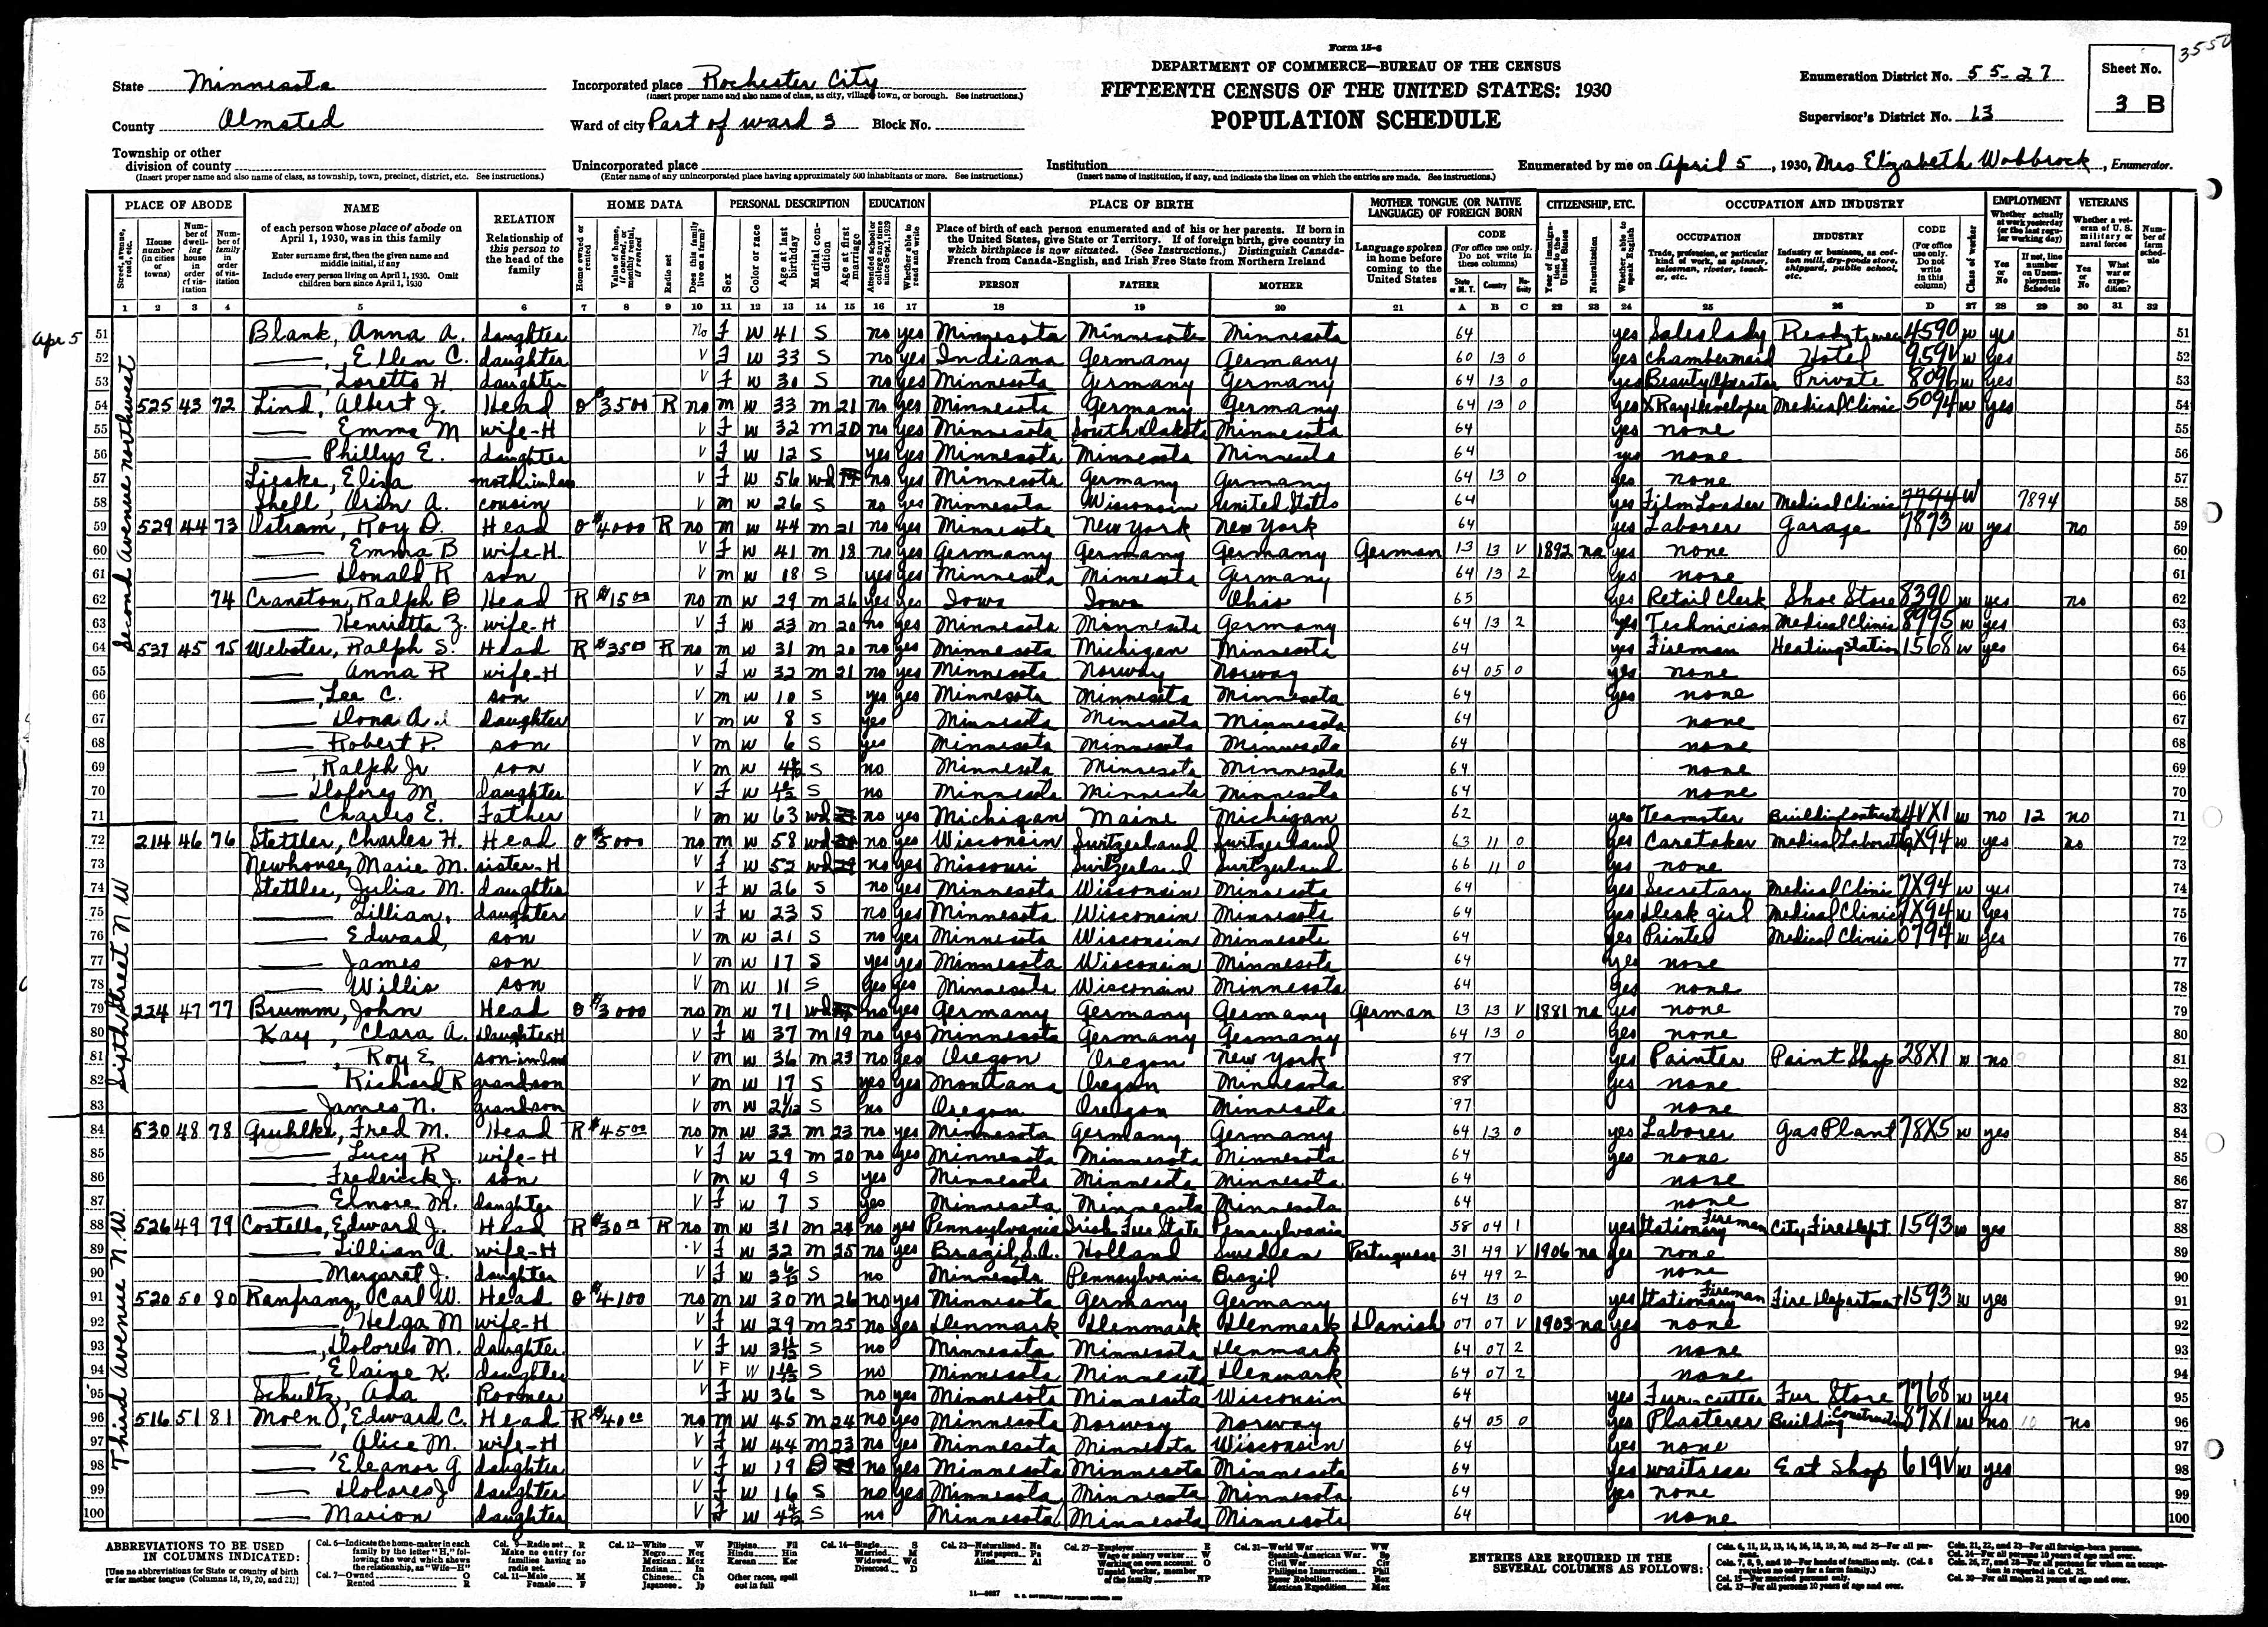 3550
Form 15-6
DEPARTMENT OF COMMERCE—BUREAU OF THE CENSUS
FIFTEENTH CENSUS OF THE UNITED STATES: 1930
POPULATION SCHEDULE
State Minnesota
County Olmsted
Township or other division of county
(Insert proper name and also name of class, as township, town, precinct, district, etc. See instructions.)
Incorporated place Rochester City
(Insert proper name and also name of class, as city, village, town, or borough. See instructions.)
Ward of city Part of ward 3 Block No.
Unincorporated place
(Enter name of any unincorporated place having approximately 500 inhabitants or more. See instructions.)
Institution
(Insert name of institution, if any, and indicate the lines on which the entries are made. See instructions.)
Enumeration District No. 55-27
Supervisor's District No. 13
Sheet No.
3 B
Enumerated by me on April 5, 1930, Mrs Elizabeth Wobbrock, Enumerator.
PLACE OF ABODE NAME RELATION HOME DATA PERSONAL DESCRIPTION EDUCATION PLACE OF BIRTH MOTHER TONGUE (OR NATIVE LANGUAGE) OF FOREIGN BORN CITIZENSHIP, ETC. OCCUPATION AND INDUSTRY EMPLOYMENT VETERANS
1 2 3 4 5 6 7 8 9 10 11 12 13 14 15 16 17 18 19 20 21 A B C 22 23 24 25 26 D 27 28 29 30 31 32
Apr 5
Second Avenue northwest
51 Blank, Anna A. daughter No F W 41 S no yes Minnesota Minnesota Minnesota 64 yes Saleslady 4590 w yes 51
52 Ellen C. daughter V F W 33 S no yes Indiana Germany Germany 60 13 0 yes chambermaid Hotel 959V w yes 52
53 Loretto H. daughter V F W 30 S no yes Minnesota Germany Germany 64 13 0 yes Beauty Operator Private 8096 w yes 53
54 525 43 72 Lind, Albert J. Head O $3500 R no m W 33 m 21 no yes Minnesota Germany Germany 64 13 0 yes X Ray Developer Medical Clinic 5094 w yes 54
55 Emma M wife-H V F W 32 m 20 no yes Minnesota South Dakota Minnesota 64 yes none 55
56 Phillys E. daughter V F W 12 S yes yes Minnesota Minnesota Minnesota 64 yes none 56
57 Lieske, Eliza mother in law V F W 56 wd no yes Minnesota Germany Germany 64 13 0 yes none 57
58 Shefl, Orin A. cousin V m W 26 S no yes Minnesota Wisconsin United States 64 yes Film Loader Medical Clinic 7794 W 7894 58
59 529 44 73 Ostram, Roy D. Head O $4000 R no m W 44 m 21 no yes Minnesota New York New York 64 yes Laborer Garage 7893 w yes no 59
60 Emma B wife-H V F W 41 m 18 no yes Germany Germany Germany German 13 13 V 1892 na yes none 60
61 Donald R son V m W 18 S yes yes Minnesota Minnesota Germany 64 13 2 yes none 61
62 74 Cranston, Ralph B Head R $15.00 no m W 29 m 26 yes yes Iowa Iowa Ohio 65 yes Retail Clerk Shoe Store 8390 w yes no 62
63 Henrietta Z. wife-H V F W 23 m 20 no yes Minnesota Minnesota Germany 64 13 2 yes Technician Medical Clinic 8995 w yes 63
64 537 45 75 Webster, Ralph S. Head R $35.00 R no m W 31 m 20 no yes Minnesota Michigan Minnesota 64 yes Fireman Heating Station 1568 w yes 64
65 Anna R wife-H V F W 32 m 21 no yes Minnesota Norway Norway 64 05 0 yes none 65
66 Lee C. son V m W 10 S yes yes Minnesota Minnesota Minnesota 64 yes none 66
67 Dona A. daughter V m W 8 S yes Minnesota Minnesota Minnesota 64 none 67
68 Robert P. son V m W 6 S yes Minnesota Minnesota Minnesota 64 none 68
69 Ralph Jr son V m W S no Minnesota Minnesota Minnesota 64 none 69
70 Dolores M daughter V F W S no Minnesota Minnesota Minnesota 64 none 70
71 Charles E. Father V m W 63 wd no yes Michigan Maine Michigan 62 yes Teamster Building Contractor 4VX1 w no 12 no 71
Sixth Street N W
72 214 46 76 Stettler, Charles H. Head O $5000 no m W 58 wd no yes Wisconsin Switzerland Switzerland 63 11 0 yes Caretaker Medical Laboratory 9X94 w yes no 72
73 Newhouse, Marie M. sister-H V F W 52 wd no yes Missouri Switzerland Switzerland 66 11 0 yes none 73
74 Stettler, Julia M. daughter V F W 26 S no yes Minnesota Wisconsin Minnesota 64 yes Secretary Medical Clinic 7X94 w yes 74
75 Lillian, daughter V F W 23 S no yes Minnesota Wisconsin Minnesota 64 yes Desk girl Medical Clinic 7X94 w yes 75
76 Edward, son V m W 21 S no yes Minnesota Wisconsin Minnesota 64 yes Printer Medical Clinic 0794 w yes 76
77 James son V m W 17 S yes yes Minnesota Wisconsin Minnesota 64 yes none 77
78 Willis son V m W 11 S yes yes Minnesota Wisconsin Minnesota 64 yes none 78
79 224 47 77 Brumm, John Head O $3000 no m W 71 wd no yes Germany Germany Germany German 13 13 V 1881 na yes none 79
80 Kay, Clara A. daughter-H V F W 37 m 19 no yes Minnesota Germany Germany 64 13 0 yes none 80
81 Roy E. son-in-law V m W 36 m 23 no yes Oregon Oregon New York 97 yes Painter Paint Shop 28X1 w no 81
82 Richard R grandson V m W 17 S yes yes Montana Oregon Minnesota 88 yes none 82
83 James N. grandson V m W S no Oregon Oregon Minnesota 97 none 83
Third Avenue N.W.
84 530 48 78 Gruhlke, Fred M. Head R $45.00 no m W 32 m 23 no yes Minnesota Germany Germany 64 13 0 yes Laborer Gas Plant 78X5 w yes 84
85 Lucy R wife-H V F W 29 m 20 no yes Minnesota Minnesota Minnesota 64 yes none 85
86 Frederick J. son V m W 9 S yes Minnesota Minnesota Minnesota 64 none 86
87 Elnore M. daughter V F W 7 S yes Minnesota Minnesota Minnesota 64 none 87
88 526 49 79 Costello, Edward J. Head R $30.00 R no m W 31 m 24 no yes Pennsylvania Irish Free State Pennsylvania 58 04 1 yes Stationary Fireman City Fire Dept. 1593 w yes 88
89 Lillian A. wife-H V F W 32 m 25 no yes Brazil, S.A. Holland Sweden Portuguese 31 49 V 1906 na yes none 89
90 Margaret J. daughter V F W S no Minnesota Pennsylvania Brazil 64 49 2 none 90
91 520 50 80 Ranfranz, Carl W. Head O $4100 no m W 30 m 26 no yes Minnesota Germany Germany 64 13 0 yes Stationary Fireman Fire Department 1593 w yes 91
92 Helga M wife-H V F W 29 m 25 no yes Denmark Denmark Denmark Danish 07 07 V 1903 na yes none 92
93 Dolores M. daughter V F W S no Minnesota Minnesota Denmark 64 07 2 none 93
94 Elaine K. daughter V F W S no Minnesota Minnesota Denmark 64 07 2 none 94
95 Schultz, Ada Roomer V F W 36 S no yes Minnesota Minnesota Wisconsin 64 yes Fur-cutter Fur Store 7768 w yes 95
96 516 51 81 Moen, Edward C. Head R $40.00 no m W 45 m 24 no yes Minnesota Norway Norway 64 05 0 yes Plasterer Building Construction 87X1 w no 10 no 96
97 Alice M. wife-H V F W 44 m 23 no yes Minnesota Minnesota Wisconsin 64 yes none 97
98 Eleanor G daughter V F W 19 D no yes Minnesota Minnesota Minnesota 64 yes waitress Eat Shop 619V w yes 98
99 Dolores J daughter V F W 16 S no yes Minnesota Minnesota Minnesota 64 yes none 99
100 Marion daughter V F W S no Minnesota Minnesota Minnesota 64 none 100
ABBREVIATIONS TO BE USED IN COLUMNS INDICATED:
[Use no abbreviations for State or country of birth or for mother tongue (Columns 18, 19, 20, and 21)]
ENTRIES ARE REQUIRED IN THE SEVERAL COLUMNS AS FOLLOWS: